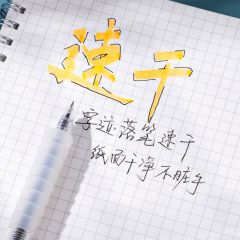 速干
字迹落笔速干
纸面干净不脏手